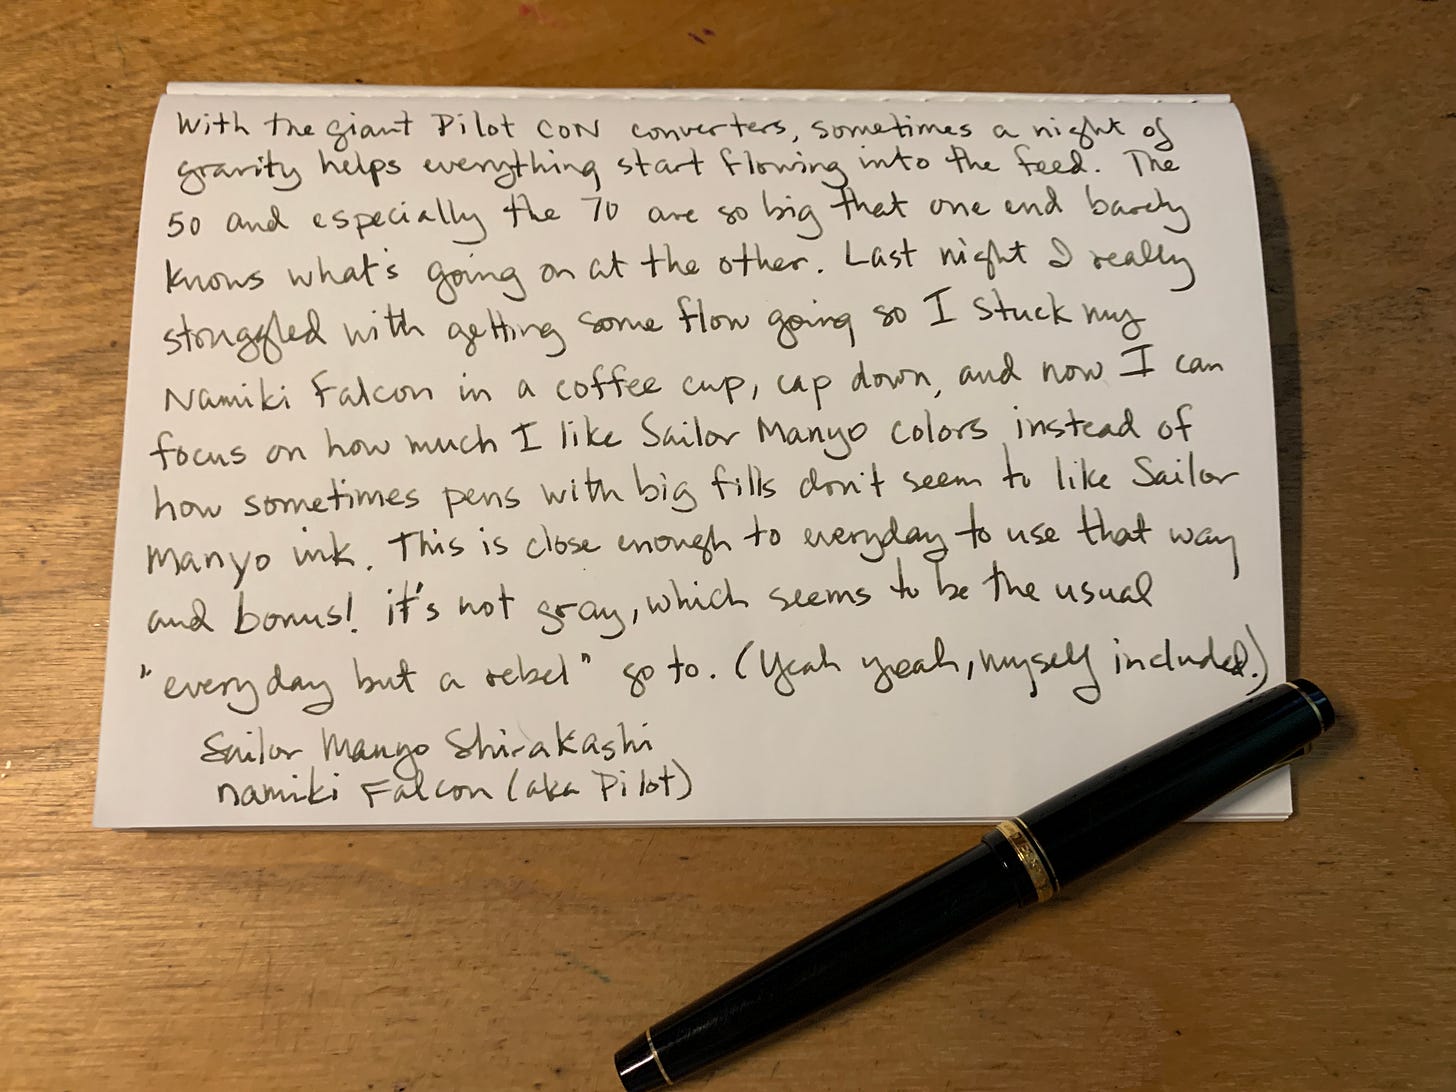 With the giant Pilot CON converters, sometimes a night of
gravity helps everything start flowing into the feed. The
50 and especially the 70 are so big that one end barely
knows what's going on at the other. Last night I really
struggled with getting some flow going so I stuck my
Namiki Falcon in a coffee cup, cap down, and now I can
focus on how much I like Sailor Manyo colors instead of
how sometimes pens with big fills don't seem to like Sailor
Manyo ink. This is close enough to everyday to use that way
and bonus! it's not gray, which seems to be the usual
"everyday but a rebel" go to. (Yeah yeah, myself included.)
Sailor Manyo Shirakashi
Namiki Falcon (aka Pilot)